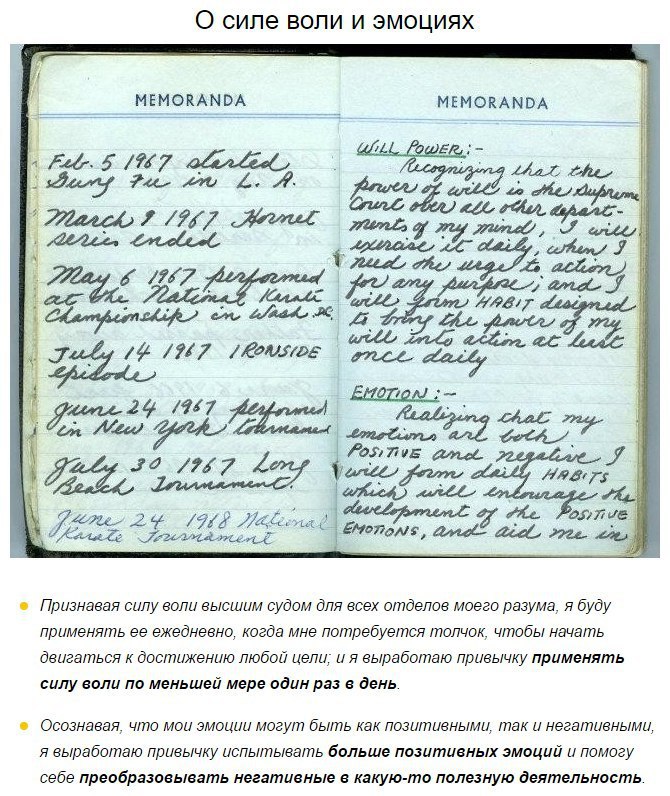 О силе воли и эмоциях
MEMORANDA
Feb. 5 1967 started
Gung Fu in L. A.
March 9 1967 Hornet
series ended
May 6 1967 performed
at the National Karate
Championship in Wash DC.
July 14 1967 IRONSIDE
episode
June 24 1967 performed
in New York tournament
July 30 1967 Long
Beach Tournament.
June 24 1968 National
Karate Tournament
MEMORANDA
WILL POWER:-
Recognizing that the
power of will is the Supreme
Court over all other depart-
ments of my mind, I will
exercise it daily, when I
need the urge to action
for any purpose; and I
will form HABIT designed
to bring the power of my
will into action at least
once daily
EMOTION:-
Realizing that my
emotions are both
POSITIVE and negative I
will form daily HABITS
which will encourage the
development of the POSITIVE
EMOTIONS, and aid me in
Признавая силу воли высшим судом для всех отделов моего разума, я буду
применять ее ежедневно, когда мне потребуется толчок, чтобы начать
двигаться к достижению любой цели; и я выработаю привычку применять
силу воли по меньшей мере один раз в день.
Осознавая, что мои эмоции могут быть как позитивными, так и негативными,
я выработаю привычку испытывать больше позитивных эмоций и помогу
себе преобразовывать негативные в какую-то полезную деятельность.